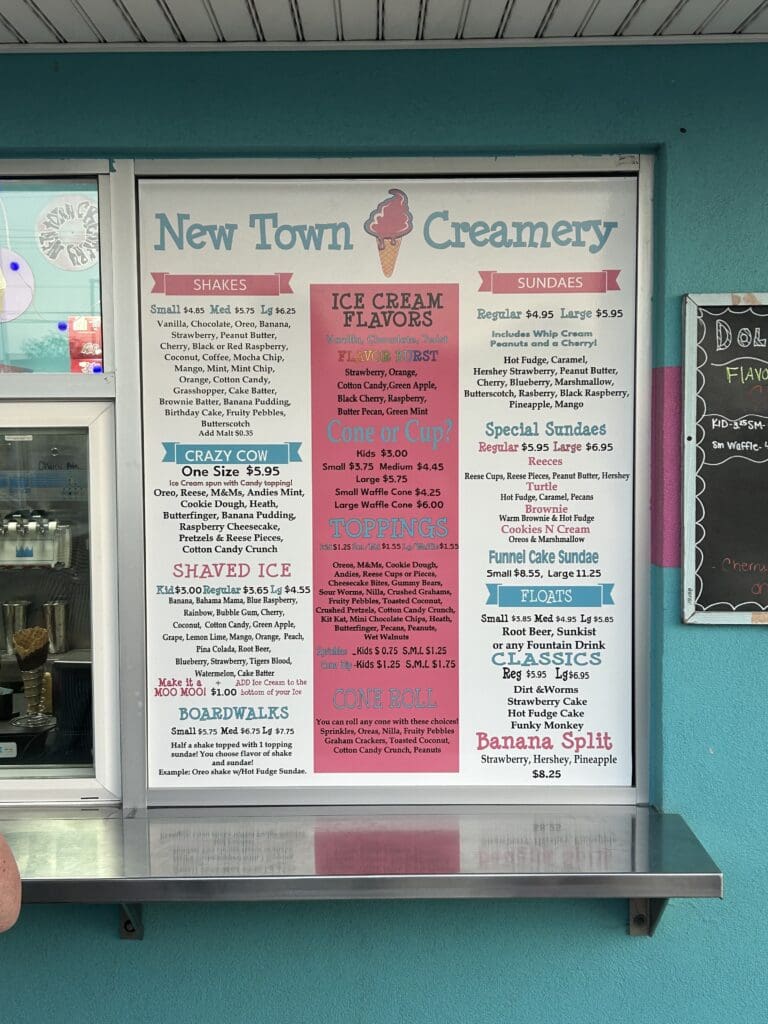 New Town Creamery
SHAKES
Small $4.85 Med $5.75 Lg $6.25
Vanilla, Chocolate, Oreo, Banana,
Strawberry, Peanut Butter,
Cherry, Black or Red Raspberry,
Coconut, Coffee, Mocha Chip,
Mango, Mint, Mint Chip,
Orange, Cotton Candy,
Grasshopper, Cake Batter,
Brownie Batter, Banana Pudding,
Birthday Cake, Fruity Pebbles,
Butterscotch
Add Malt $0.35
CRAZY COW
One Size $5.95
Ice Cream spun with Candy topping!
Oreo, Reese, M&Ms, Andies Mint,
Cookie Dough, Heath,
Butterfinger, Banana Pudding,
Raspberry Cheesecake,
Pretzels & Reese Pieces,
Cotton Candy Crunch
SHAVED ICE
Kid $3.00 Regular $3.65 Lg $4.55
Banana, Bahama Mama, Blue Raspberry,
Rainbow, Bubble Gum, Cherry,
Coconut, Cotton Candy, Green Apple,
Grape, Lemon Lime, Mango, Orange, Peach,
Pina Colada, Root Beer,
Blueberry, Strawberry, Tigers Blood,
Watermelon, Cake Batter
Make it a + ADD Ice Cream to the
MOO MOO! $1.00 bottom of your Ice
BOARDWALKS
Small $5.75 Med $6.75 Lg $7.75
Half a shake topped with 1 topping
sundae! You choose flavor of shake
and sundae!
Example: Oreo shake w/Hot Fudge Sundae.
ICE CREAM
FLAVORS
Vanilla, Chocolate, Twist
FLAVOR BURST
Strawberry, Orange,
Cotton Candy, Green Apple,
Black Cherry, Raspberry,
Butter Pecan, Green Mint
Cone or Cup?
Kids $3.00
Small $3.75 Medium $4.45
Large $5.75
Small Waffle Cone $4.25
Large Waffle Cone $6.00
TOPPINGS
Kid $1.25 Sm/Md $1.55 Lg/Waffle $1.55
Oreos, M&Ms, Cookie Dough,
Andies, Reese Cups or Pieces,
Cheesecake Bites, Gummy Bears,
Sour Worms, Nilla, Crushed Grahams,
Fruity Pebbles, Toasted Coconut,
Crushed Pretzels, Cotton Candy Crunch,
Kit Kat, Mini Chocolate Chips, Heath,
Butterfinger, Pecans, Peanuts,
Wet Walnuts
Sprinkles -Kids $ 0.75 S,M,L $1.25
Cone Dip -Kids $1.25 S,M,L $1.75
CONE ROLL
You can roll any cone with these choices!
Sprinkles, Oreas, Nilla, Fruity Pebbles
Graham Crackers, Toasted Coconut,
Cotton Candy Crunch, Peanuts
SUNDAES
Regular $4.95 Large $5.95
Includes Whip Cream
Peanuts and a Cherry!
Hot Fudge, Caramel,
Hershey Strawberry, Peanut Butter,
Cherry, Blueberry, Marshmallow,
Butterscotch, Rasberry, Black Raspberry,
Pineapple, Mango
Special Sundaes
Regular $5.95 Large $6.95
Reeces
Reese Cups, Reese Pieces, Peanut Butter, Hershey
Turtle
Hot Fudge, Caramel, Pecans
Brownie
Warm Brownie & Hot Fudge
Cookies N Cream
Oreos & Marshmallow
Funnel Cake Sundae
Small $8.55, Large 11.25
FLOATS
Small $3.85 Med $4.95 Lg $5.85
Root Beer, Sunkist
or any Fountain Drink
CLASSICS
Reg $5.95 Lg $6.95
Dirt &Worms
Strawberry Cake
Hot Fudge Cake
Funky Monkey
Banana Split
Strawberry, Hershey, Pineapple
$8.25